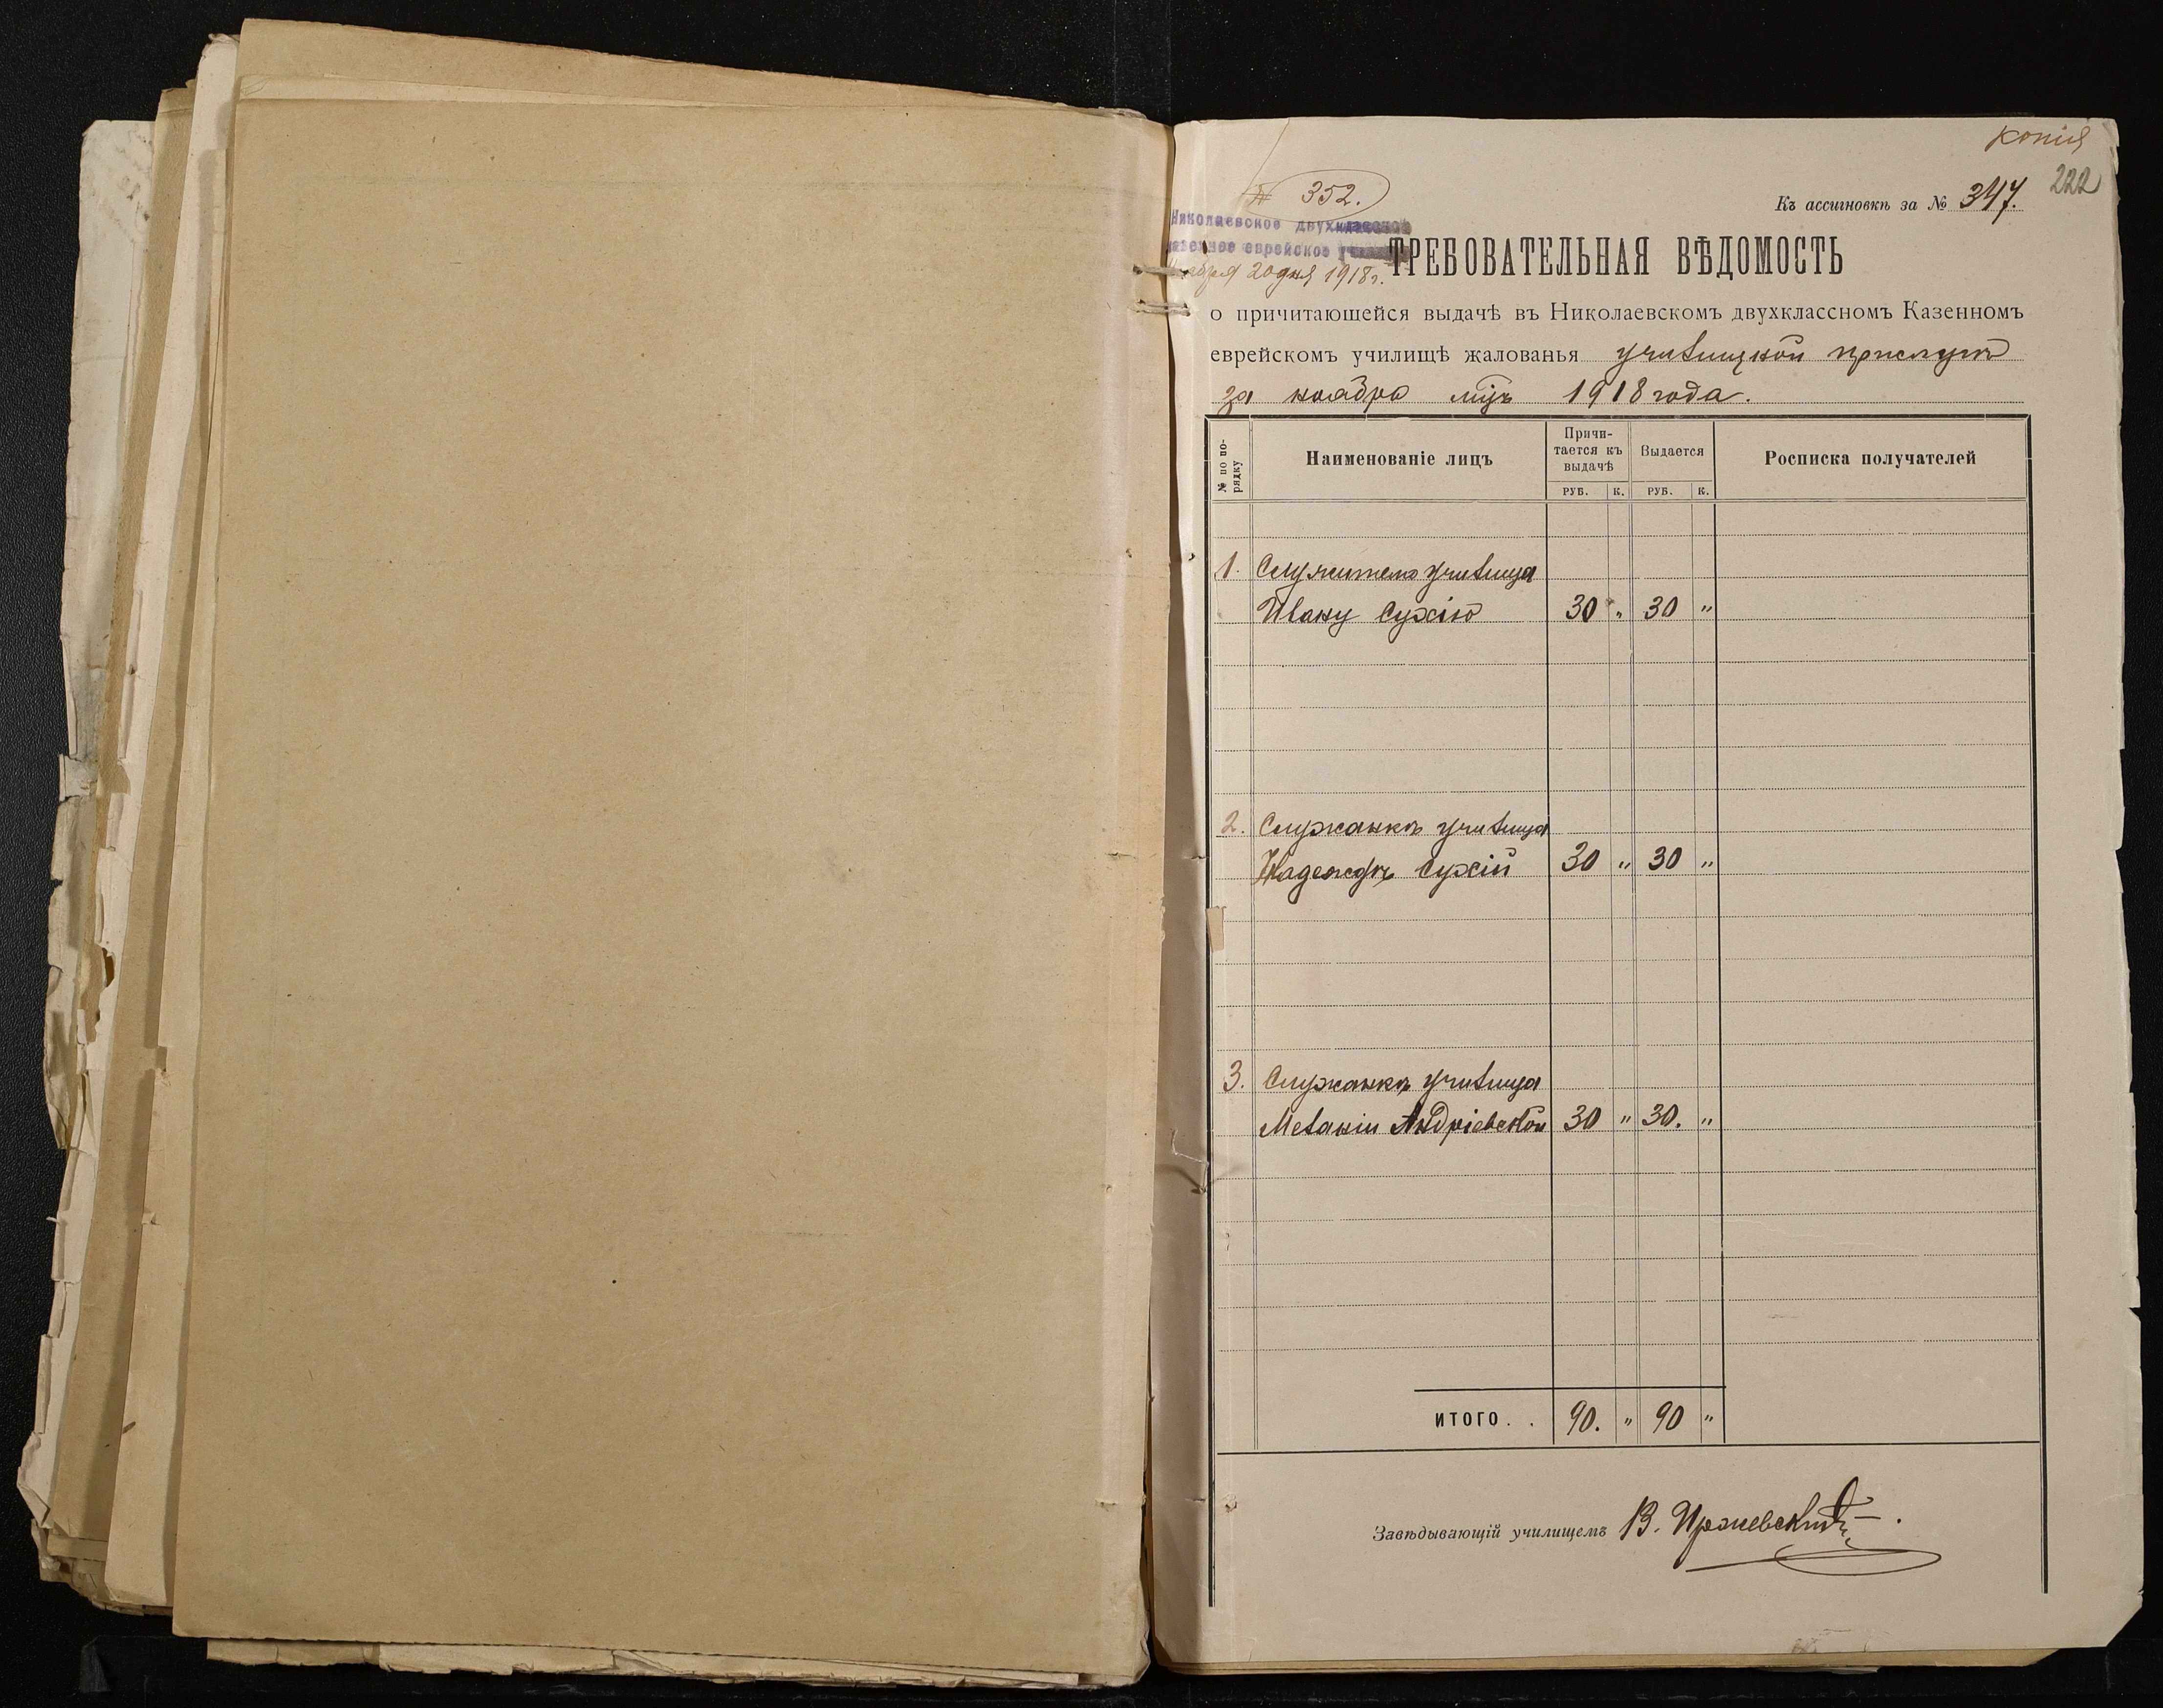 копія
222
№ 352.
Къ ассигновкѣ за № 347.
Николаевское двухклассное
казенное еврейское
ноября 20 дня 1918 г.
ТРЕБОВАТЕЛЬНАЯ ВѢДОМОСТЬ
о причитающейся выдачѣ въ Николаевскомъ двухклассномъ Казенномъ
еврейскомъ училищѣ жалованья училищной прислугѣ
за ноябрь мцъ 1918 года.
№ по по-
рядку
Наименованіе лицъ
Причи-
тается къ
выдачѣ
Выдается
Росписка получателей
РУБ. К. РУБ. К.
1. Служителю училища
Ивану Сухію 30 " 30 "
2. Служанкѣ училища
Надеждѣ Сухій 30 " 30 "
3. Служанкѣ училища
Меланіи Андріевской 30 " 30. "
ИТОГО . . 90. " 90 "
Завѣдывающій училищемъ В.